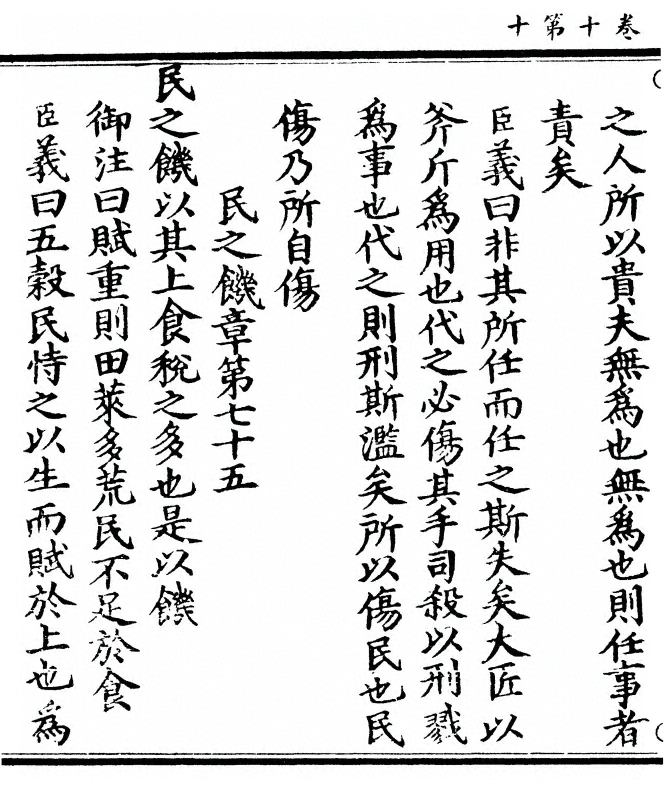 十第十卷
之人所以貴夫無爲也無爲也則任事者
責矣
臣義曰非其所任而任之斯失矣大匠以
斧斤爲用也代之必傷其手司殺以刑戮
爲事也代之則刑斯濫矣所以傷民也民
傷乃所自傷
民之饑章第七十五
民之饑以其上食稅之多也是以饑
御注曰賦重則田萊多荒民不足於食
臣義曰五穀民恃之以生而賦於上也爲